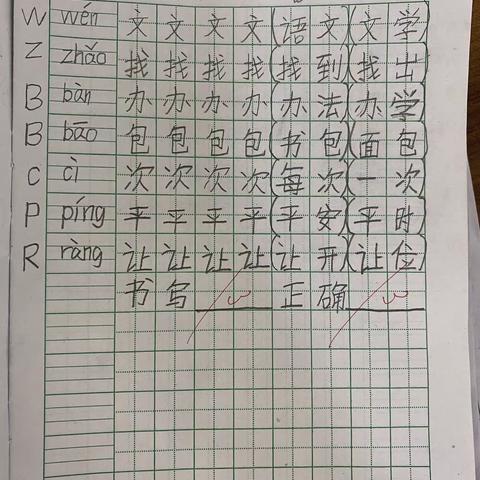 W wén 文 文 文 文 (语 文)(文 学)
Z zhǎo 找 找 找 找 (找 到)(找 出)
B bàn 办 办 办 办 (办 法)(办 学)
B bāo 包 包 包 包 (书 包)(面 包)
C cì 次 次 次 次 (每 次)(一 次)
P píng 平 平 平 平 (平 安)(平 时)
R ràng 让 让 让 让 (让 开)(让 位)
书 写 正 确